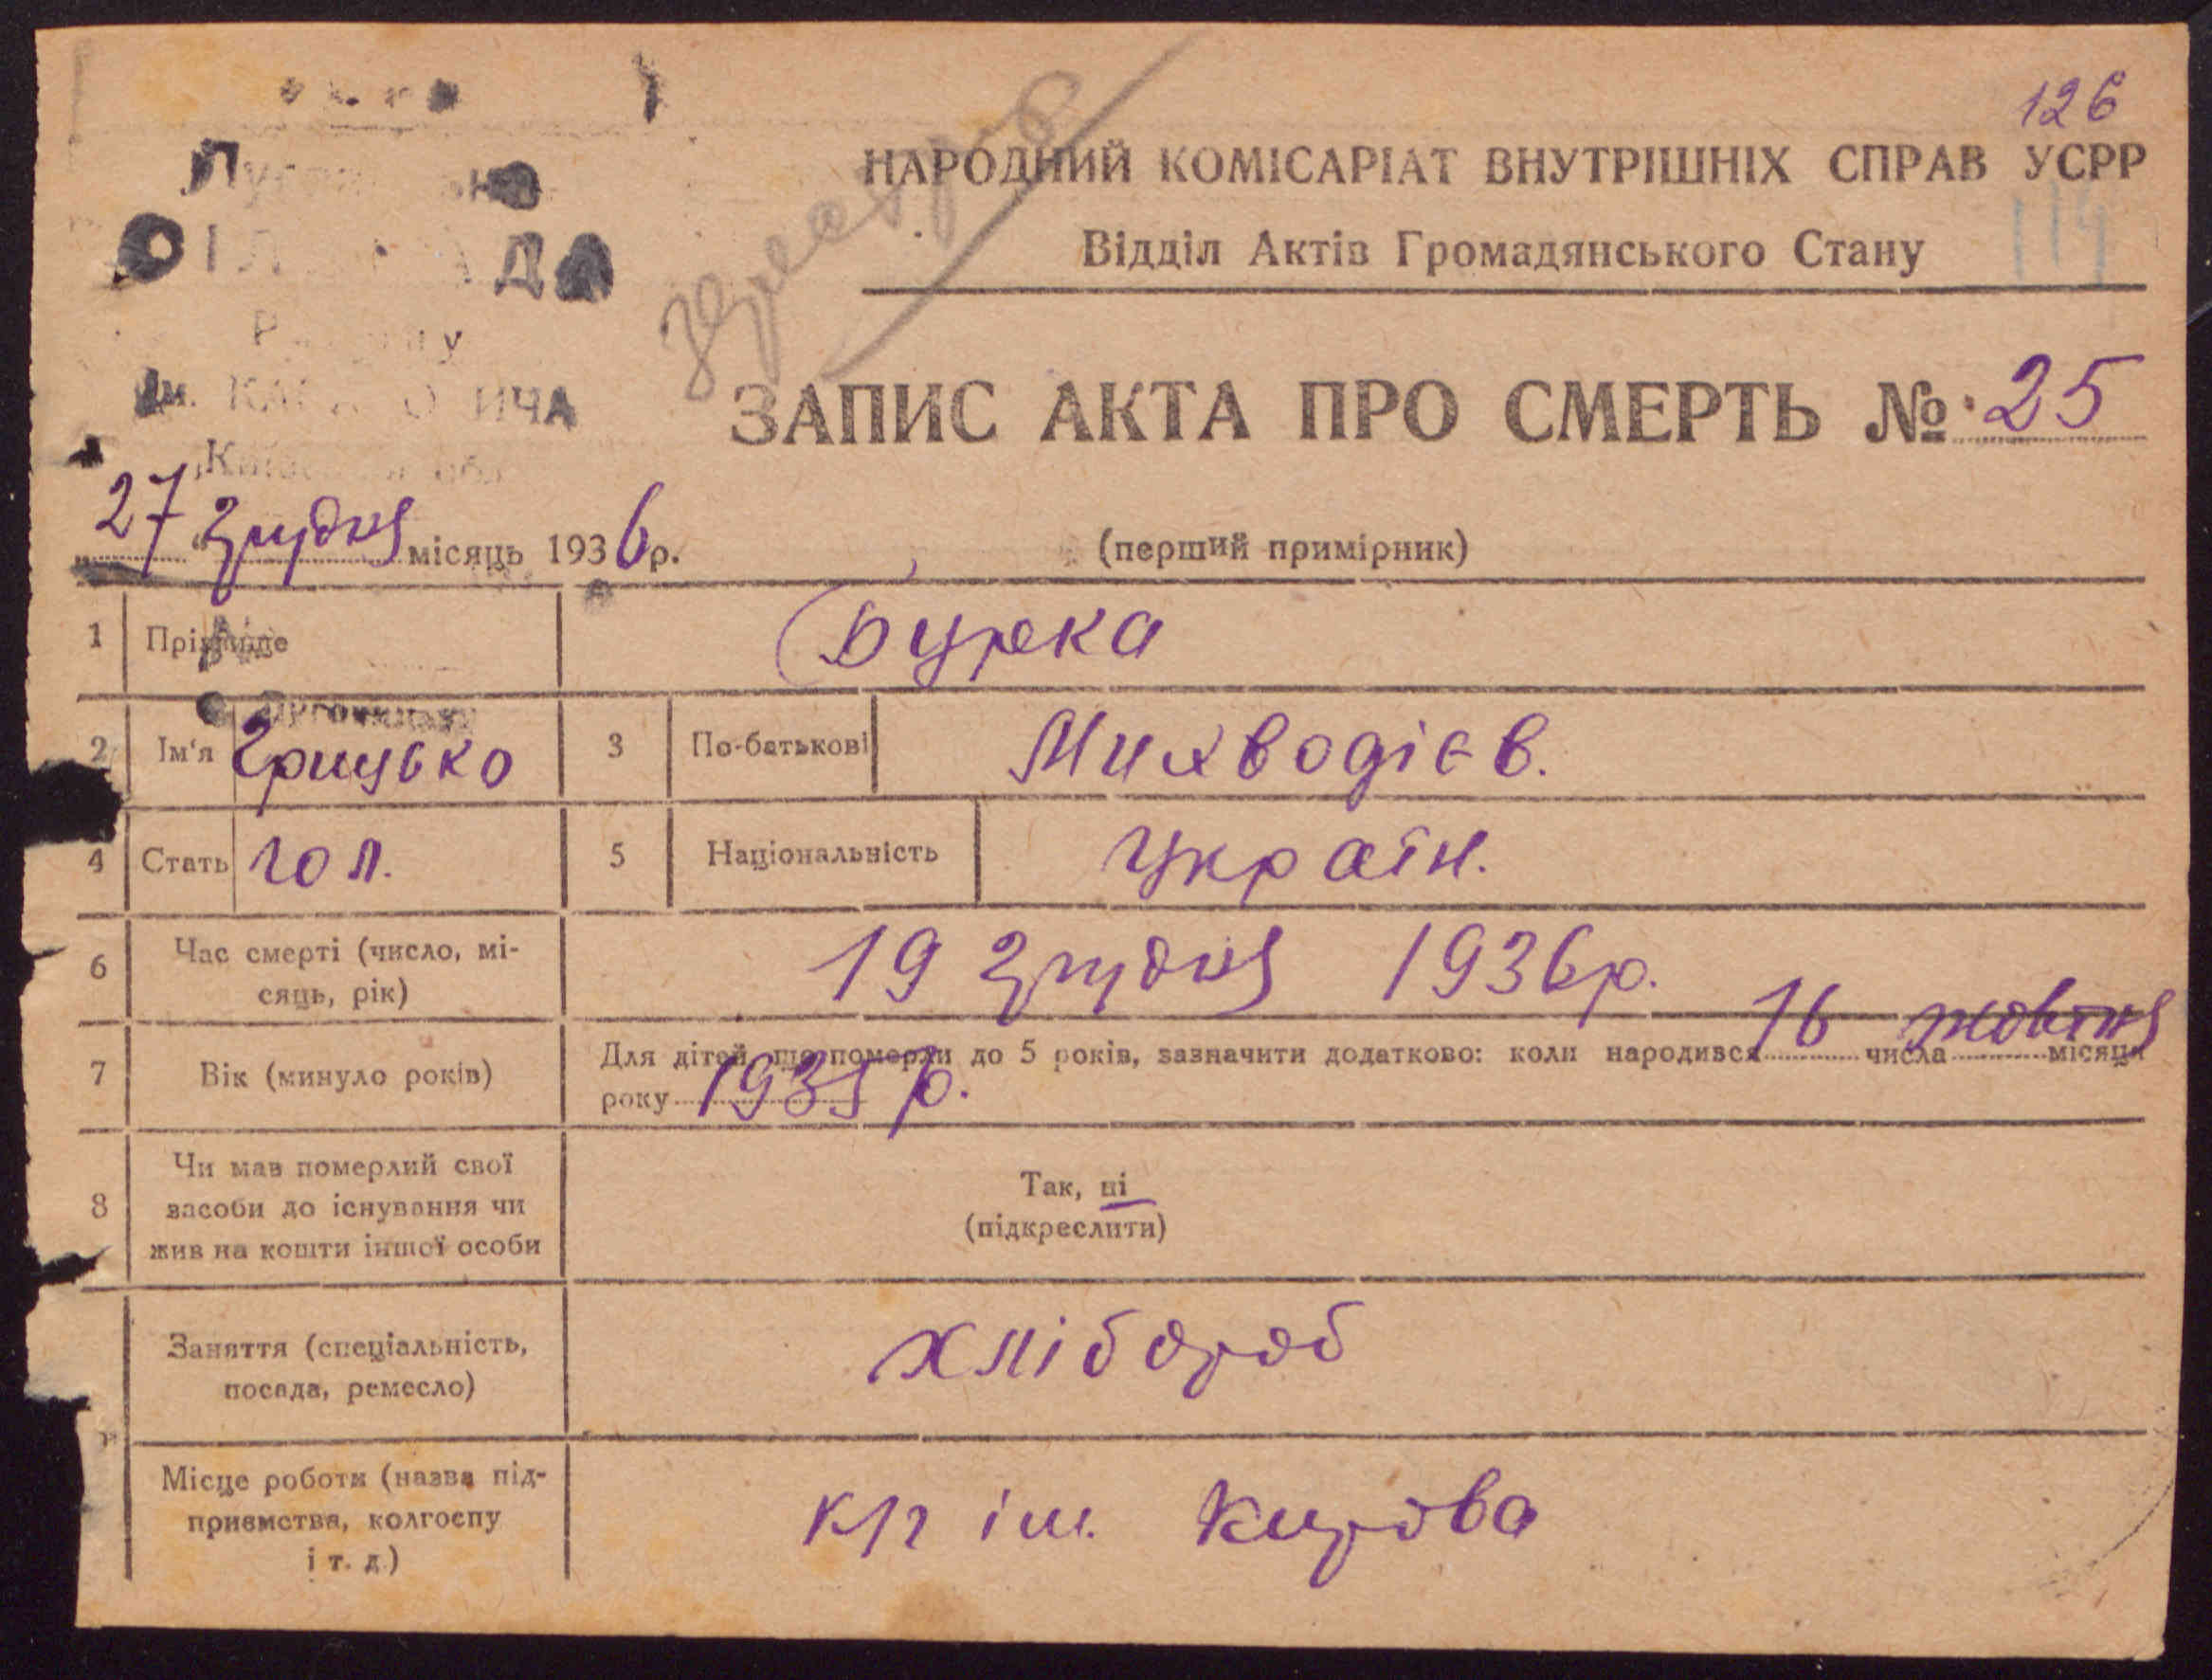 126
НАРОДНИЙ КОМІСАРІАТ ВНУТРІШНІХ СПРАВ УСРР
114
Відділ Актів Громадянського Стану
ЗАПИС АКТА ПРО СМЕРТЬ № 25
27 грудня місяць 1936 р.
(перший примірник)
1 Прізвище Бурка
2 Ім'я Грицько 3 По-батькові
4 Стать чол. 5 Національність Україн.
6 Час смерті (число, мі-
сяць, рік) 19 грудня 1936 р.
7 Вік (минуло років) Для дітей, що померли до 5 років, зазначити додатково: коли народився 16 числа жовтня місяця
року 1935 р.
8 Чи мав померлий свої
засоби до існування чи
жив на кошти іншої особи
Так, ні
(підкреслити)
Заняття (спеціальність,
посада, ремесло) хлібороб
Місце роботи (назва під-
приємства, колгоспу
і т. д.) кг ім. Кірова